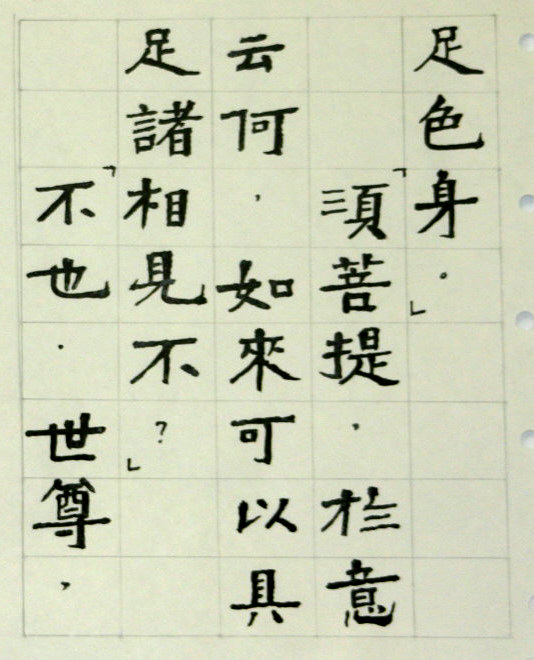 足色身。」
「須菩提。於意
云何,如來可以具
足諸相見不?」
「不也.世尊,